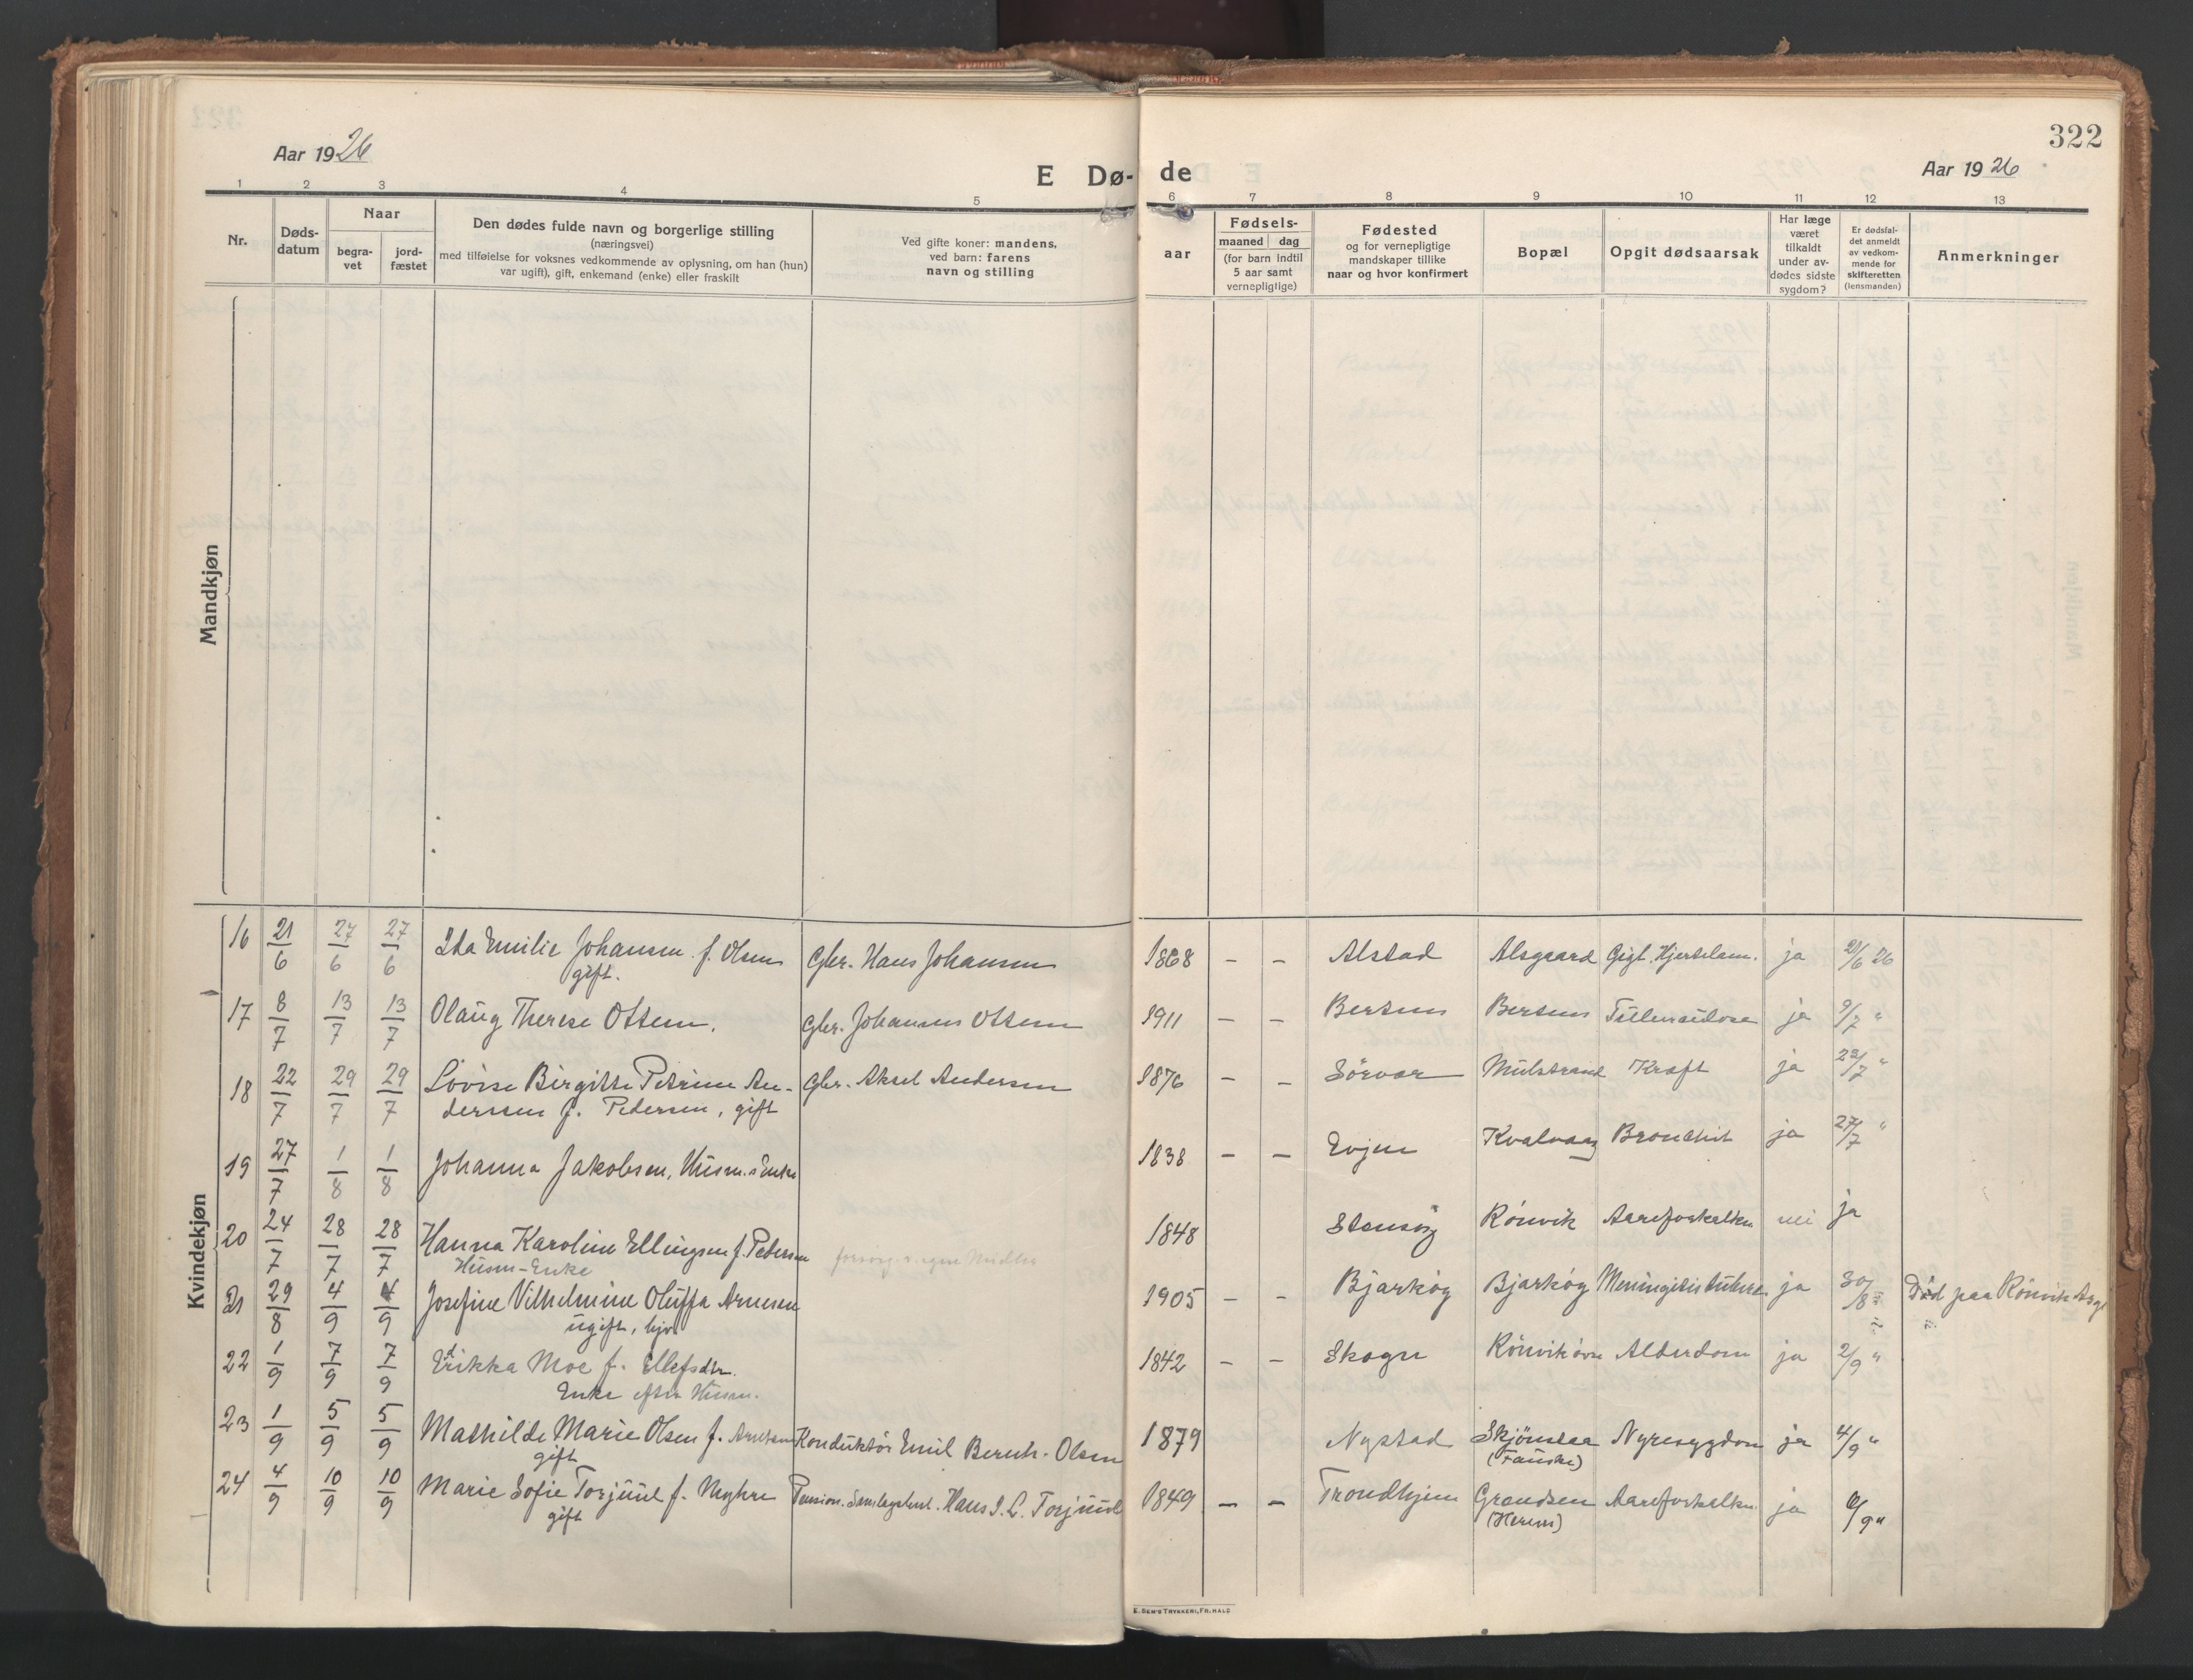 322
Aar 1926
E Dø-de
Aar 1926
1 2 3 4 5 6 7 8 9 10 11 12 13
Nr.
Døds-
datum
Naar
begra-
vet
jord-
fæstet
Den dødes fulde navn og borgerlige stilling
(næringsvei)
med tilføielse for voksnes vedkommende av oplysning, om han (hun)
var ugift), gift, enkemand (enke) eller fraskilt
Ved gifte koner: mandens,
ved barn: farens
navn og stilling
aar
Fødsels-
maaned dag
(for barn indtil
5 aar samt
vernepligtige)
Fødested
og for vernepligtige
mandskaper tillike
naar og hvor konfirmert
Bopæl
Opgit dødsaarsak
Har læge
været
tilkaldt
under av-
dødes sidste
sygdom?
Er dødsfal-
det anmeldt
av vedkom-
mende for
skifteretten
(lensmanden)
Anmerkninger
Mandkjøn
Kvindekjøn
16 21/6 27/6 27/6 Ida Emilie Johansen f. Olsen Gbr. Hans Johansen 1868 – – Alstad Alsgaard Gigt. Hjertelam. ja 21/6 26
gift.
17 8/7 13/7 13/7 Olaug Therese Ottem. Gbr. Johannes Ottem 1911 – – Bertnes Bertnes ja 9/7 "
18 22/7 29/7 29/7 Lovise Birgitte Petrine An- Gbr. Aksel Andersen 1876 – – Sörvær Mulstrand Kræft ja 23/7 "
derssen f. Pedersen, gift
19 27/7 1/8 1/8 Johanna Jakobsen, Husm.s Enke 1838 – – Evjen Kvalvaag Bronchit ja 27/7 "
20 24/7 28/7 28/7 Hanna Karoline Ellingsen f. Pedersen forsørg. v. egne Midler 1848 Stensøy Rønvik Aareforkalkn nei ja
Husm-Enke
21 29/8 4/9 4/9 Josefine Vilhelmine Oluffa Arnesen 1905 – – Bjarkøy Bjarkøy Meningitis tuberc ja 30/8 " Død paa Rønvik Asyl
ugift, hjv.
22 1/9 7/9 7/9 Erikka Moe f. Ellefsdtr. 1842 – – Skogn Rønvik øvre Alderdom ja 2/9 "
Enke efter Husm.
23 1/9 5/9 5/9 Mathilde Marie Olsen f. Arntsen Konduktör Emil Bernh. Olsen 1879 Nystad Skjönstaa Nyresygdom ja 4/9 "
gift (Fauske)
24 4/9 10/9 10/9 Marie Sofie Torjuul f. Myhre Pension. Samlagsbest. Hans I. L. Torjuul 1849 – – Trondhjem Grandsen Aareforkalkn. ja 6/9 "
gift
E. SEM'S TRYKKERI, FR.HALD